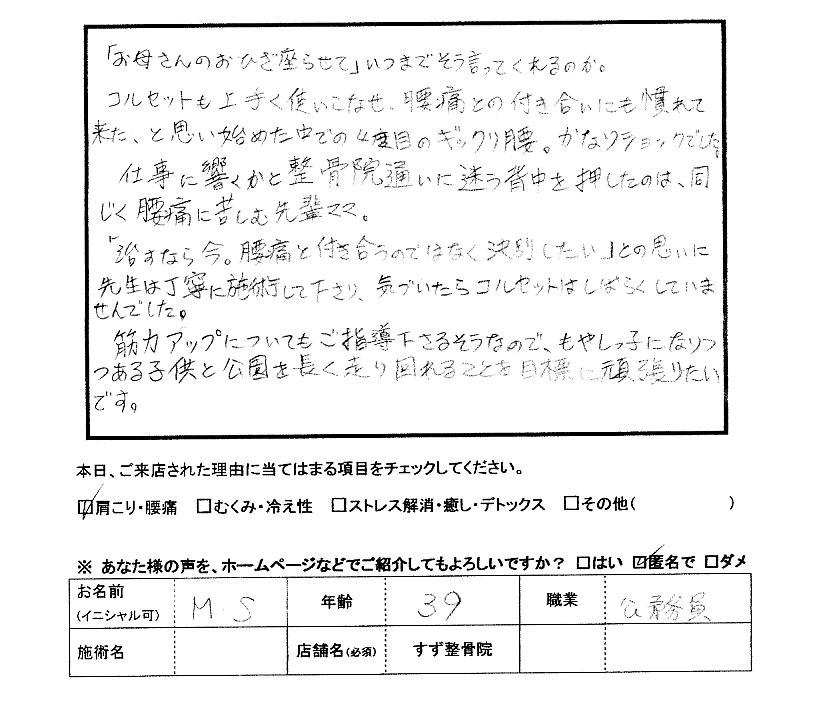 「お母さんのおひざ座らせて」いつまでそう言ってくれるのか。
コルセットも上手く使いこなせ、腰痛との付き合いにも慣れて
来た、と思い始めた中での4度目のギックリ腰。かなりショックでした。
仕事に響くかと整骨院通いに迷う背中を押したのは、同
じく腰痛に苦しむ先輩ママ。
「治すなら今。腰痛と付き合うのではなく決別したい」との思いに
先生は丁寧に施術して下さり、気づいたらコルセットはしばらくしていま
せんでした。
筋力アップについてもご指導下さるそうなので、もやしっ子になりつ
つある子供と公園を長く走り回れることを目標に頑張りたい
です。
本日、ご来店された理由に当てはまる項目をチェックしてください。
☑肩こり・腰痛 □むくみ・冷え性 □ストレス解消・癒し・デトックス □その他( )
※ あなた様の声を、ホームページなどでご紹介してもよろしいですか? □はい ☑匿名で □ダメ
お名前 (イニシャル可) M.S 年齢 39 職業 公務員
施術名 店舗名(必須) すず整骨院